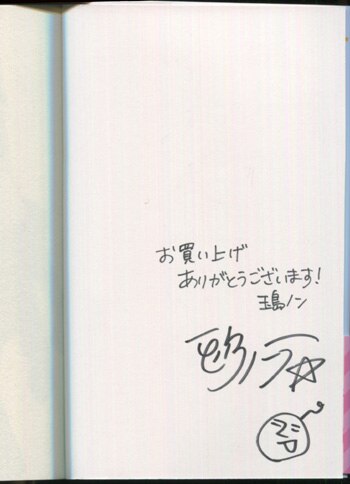 お買い上げ
ありがとうございます!
玉島ノン